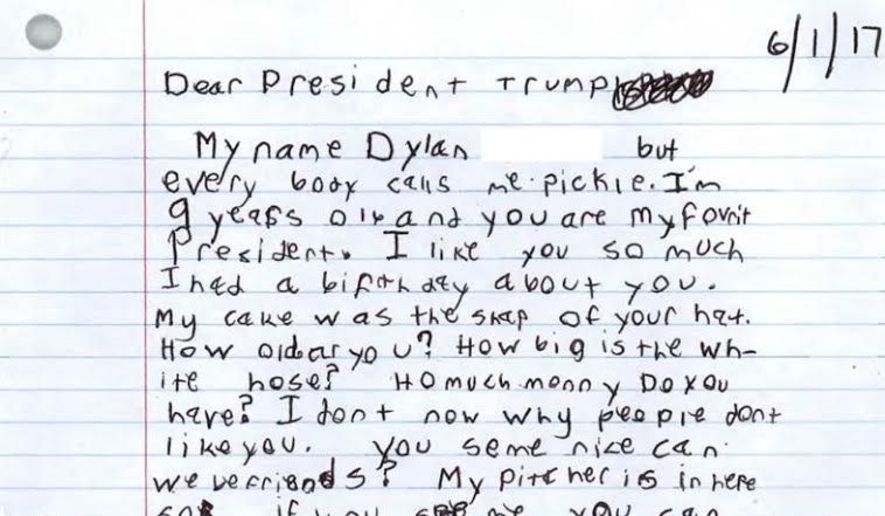 6/1/17
Dear President Trump
My name Dylan but
every body calls me pickle. I'm
9 years old and you are my fovrit
President. I like you so much
I had a birthday about you.
My cake was the shap of your hat.
How old ar you? How big is the wh-
ite hose? Ho much monny Do you
have? I dont now why people dont
like you. you seme nice can
we be friends? My pitcher is in here
so if you see me you can